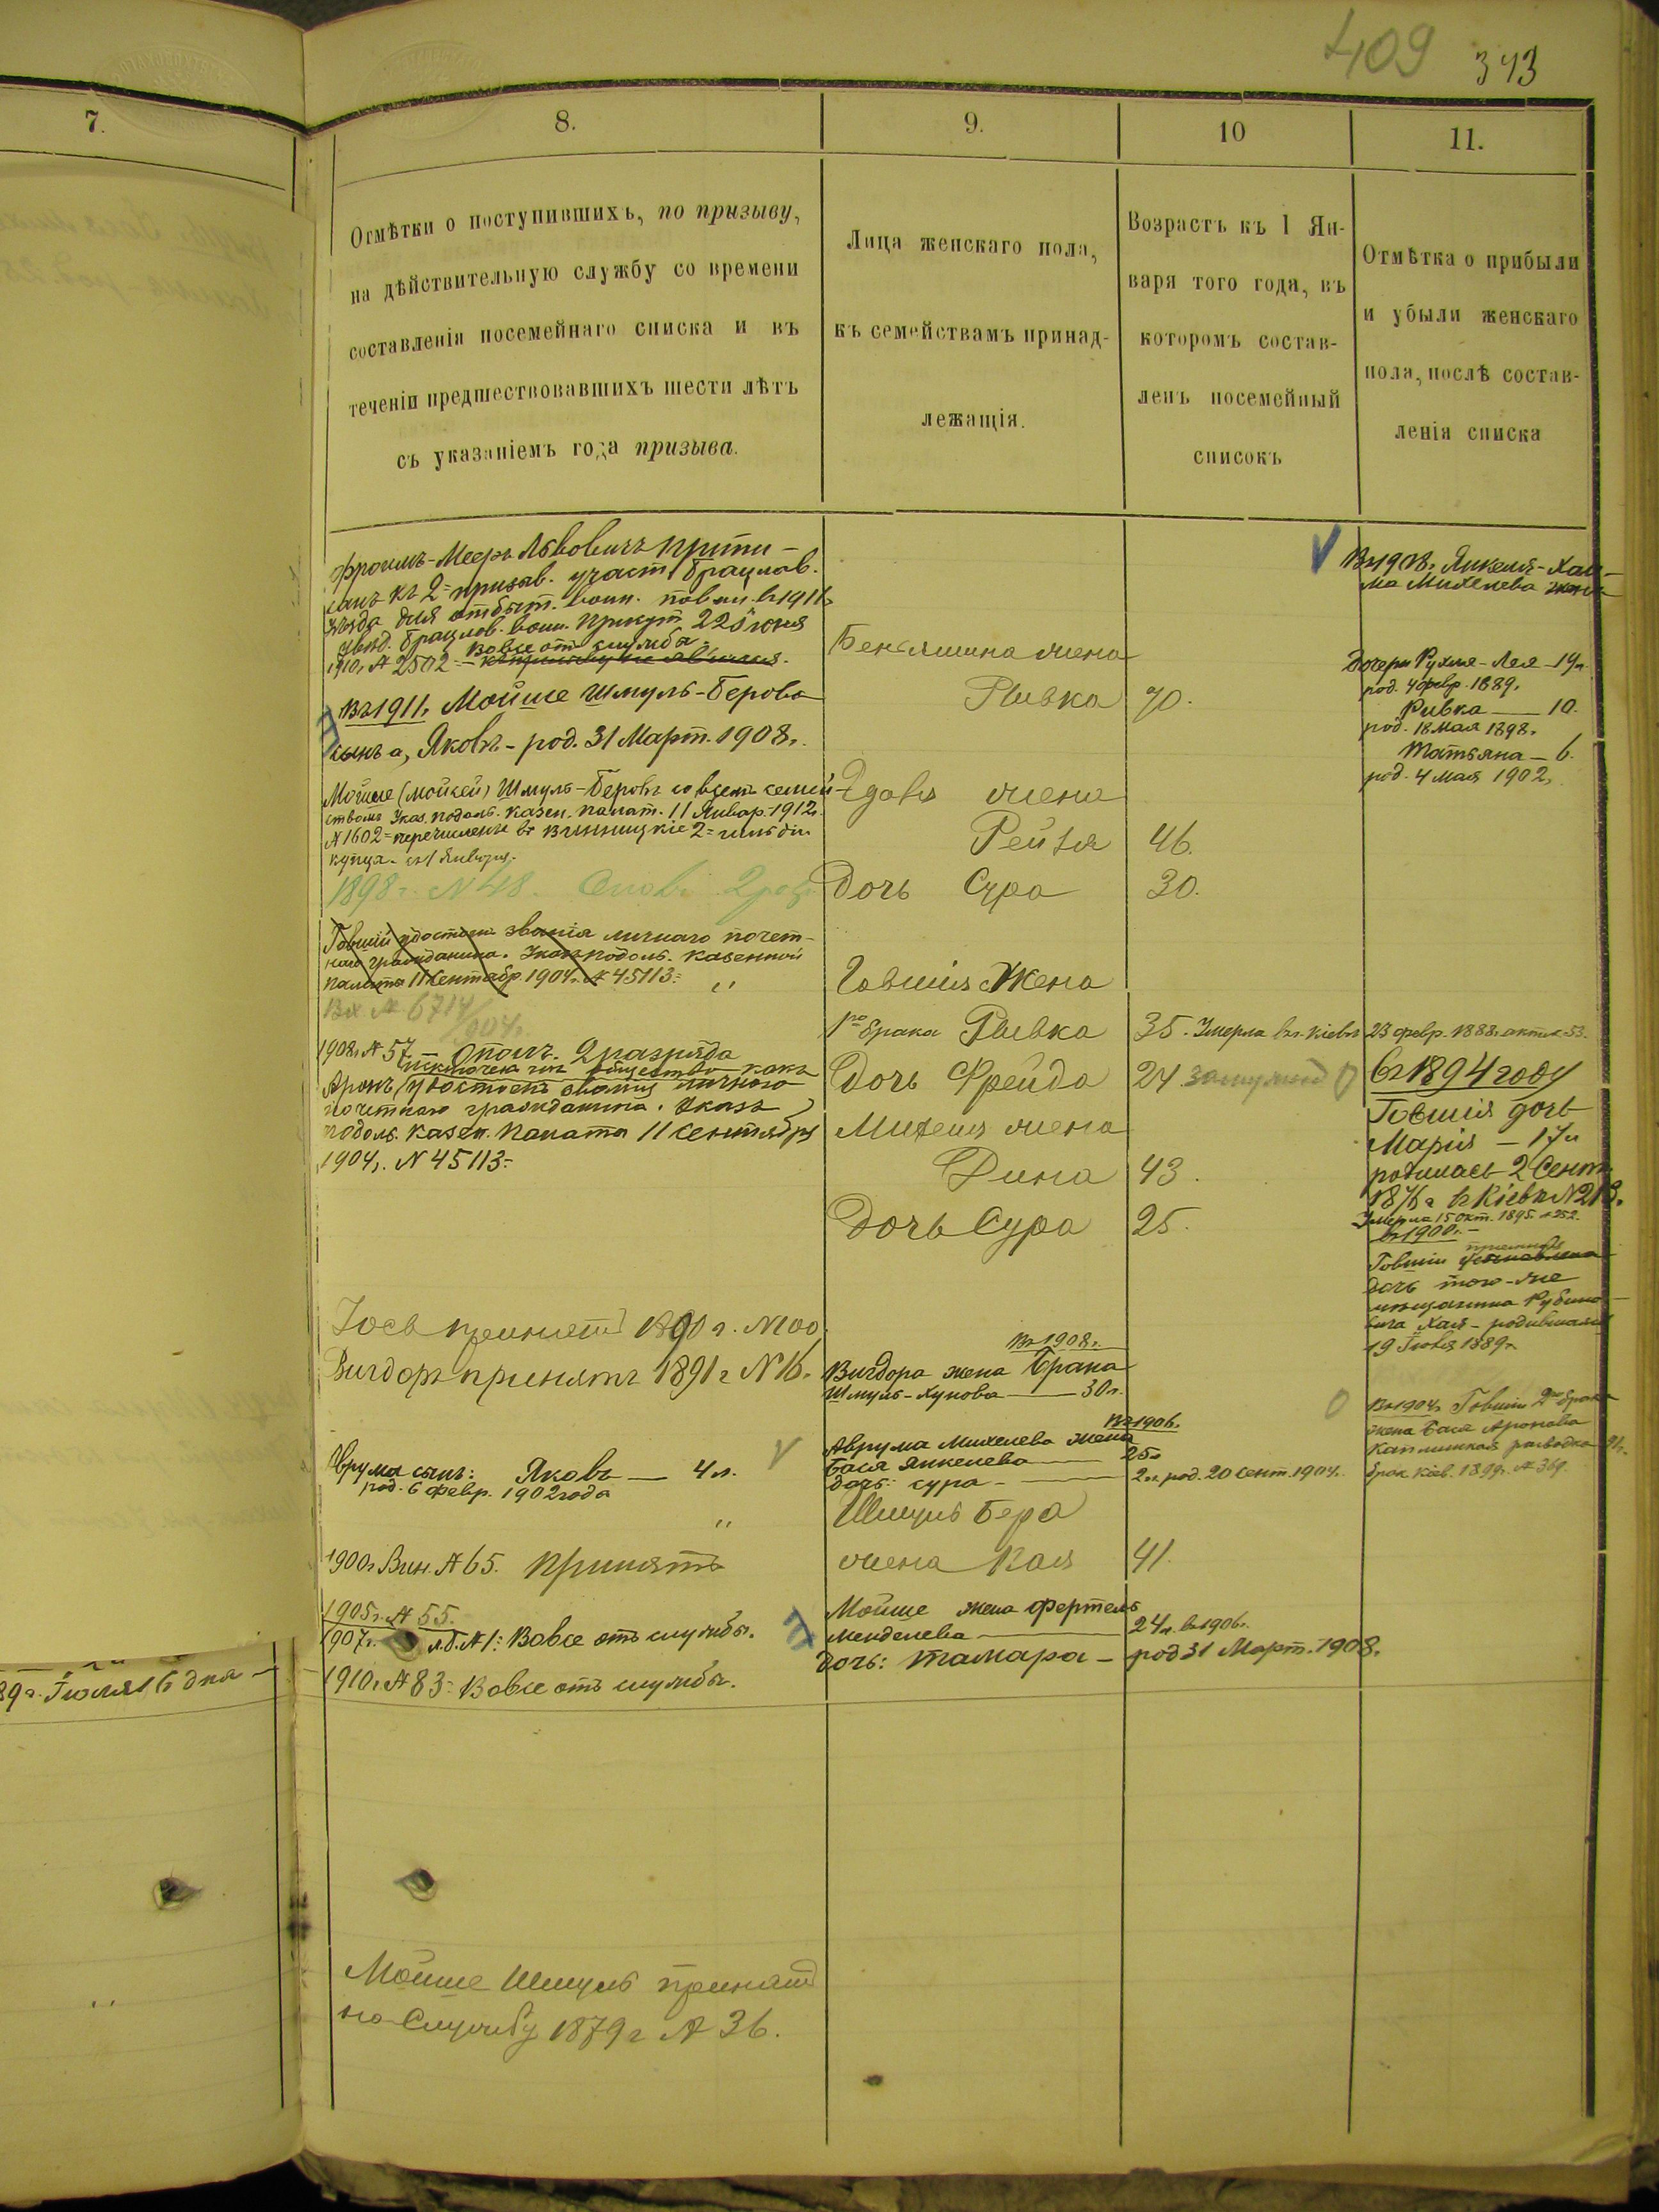 409 343
7.
8.
9.
10
11.
Отмѣтки о поступившихъ, по призыву,
на дѣйствительную службу со времени
составленія посемейнаго списка и въ
теченіи предшествовавшихъ шести лѣтъ
съ указаніемъ года призыва.
Лица женскаго пола,
къ семействамъ принад-
лежащія.
Возрастъ къ 1 Ян-
варя того года, въ
которомъ состав-
ленъ посемейный
списокъ
Отмѣтка о прибыли
и убыли женскаго
пола, послѣ состав-
ленія списка
89 г. Іюля 16 дня —
Фроимъ-Мееръ Львовичъ припи-
санъ къ 2= призыв. участ. Брацлав.
уѣзда для отбыт. воин. повин. въ 1911 г.
свѣд. Брацлов. воин. присут. 22 Іюня
1910 г. № 2502 =
Вовсе отъ службы.
Въ 1911 г. Мойше Шмуль-Берова
сынъ а, Яковъ - род. 31 Март. 1908 г.
Мойше (Мойсей) Шмуль-Беровъ со всемъ семей-
ствомъ Указ. Подоль. Казен. Палат. 11 Январ. 1912 г.
№ 1602 = перечисленъ въ Винницкіе 2= гильдіи
купца. съ 1 Января.
1898 г. № 48.
Товшій удостоен званія личнаго почет-
наго гражданина. Указъ Подоль. Казенной
Палаты 11 Сентябр. 1904 г. № 45113 =
Вх. № 6714/904 г.
1908 г. № 57 Ополч. 2 разряда
Исключенъ изъ общества какъ
Аронъ (удостоенъ званія личнаго
почетнаго гражданина. Указъ
Подоль. Казен. Палаты 11 Сентября
1904 г. № 45113 =
Іось принятъ 1890 г. № 100.
Вигдоръ принятъ 1891 г. № 16.
Аврума сынъ: Яковъ — 4 л.
род. 6 Февр. 1902 года
1900 г. Вин. № 65. Принятъ
1905 г. № 55.
1907 г. № 1: Вовсе отъ службы.
1910 г. № 83 = Вовсе отъ службы.
Мойше Шмуль принятъ
на службу 1879 г. № 36.
Беньямина жена
Ривка 70.
жена
Рейзя 46.
Дочь Сура 30.
Товшія Жена
1го брака Ривка 35. Умерла въ г. Кіевѣ 23 февр. 1888 г. актъ № 53.
Дочь Фрейда 24 замужем
Михеля жена
Дина 43.
Дочь Сура 25.
Въ 1908 г.
Вигдора жена Брана
Шмуль-Хунова — 30 л.
Въ 1906 г.
Аврума Михелева жена
Бася Янкелева — 25 л.
дочь: Сура — 2 л. род. 20 Сент. 1904 г.
Шмуль Бера
жена Хая 41.
Мойше жена Фертель
Менделева — 24 л. въ 1906 г.
Дочь: Тамара — род 31 Март. 1908 г.
Въ 1908 г. Янкеля-Хаи-
ма Михелева жена
Дочери Рухля-Лея — 19 л.
род. 4 февр. 1889 г.
Ривка — 10.
род. 18 Мая 1898 г.
Татьяна — 6.
род. 4 Мая 1902 г.
Въ 1894 году
Товшія дочь
Марія — 17 л
родилась 2 Сент.
1876 г. въ Кіевѣ № 218.
Умерла 15 Окт. 1895 г. № 252.
Въ 1900 г. —
Товшіи
дочь того-же
мѣщанина Рубино-
вича Хая - родившаяся
19 Іюля 1889 г.
Въ 1904 г. Товшіи 2го брака
жена Бася Аронова
разводка
брак. Кіев. 1899 г. № 369.